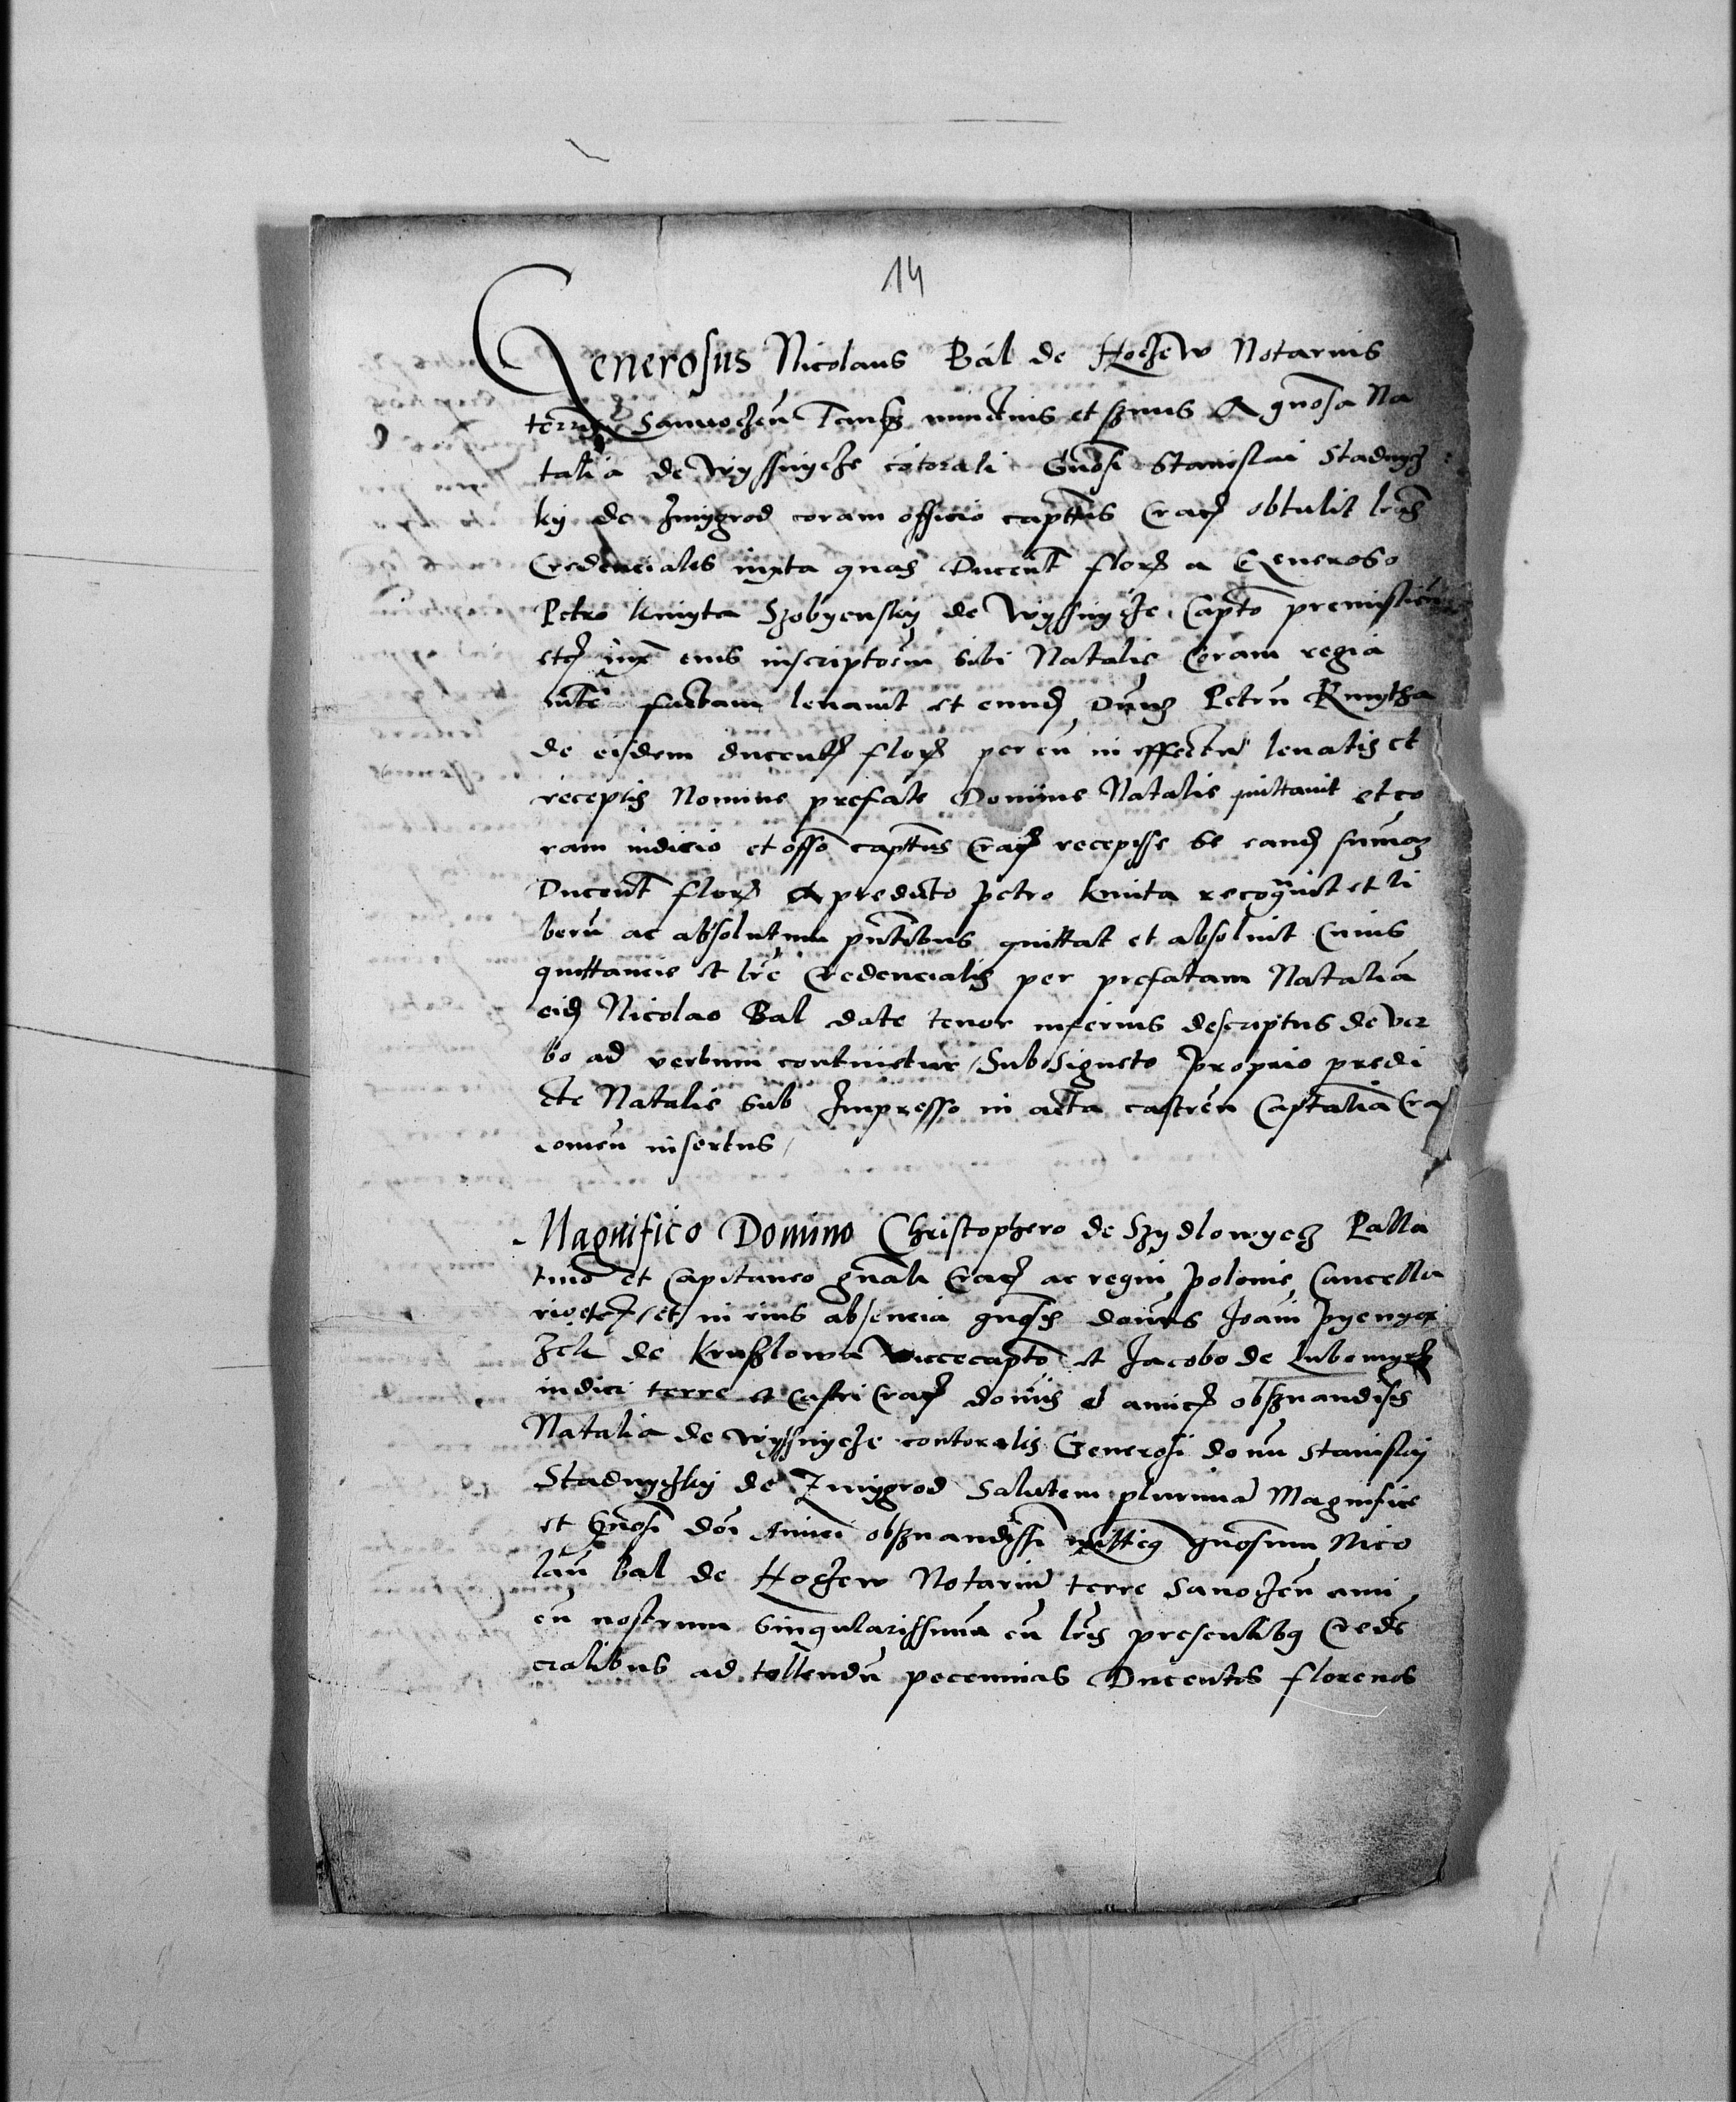 14
Generosus Nicolaus Bal de Hoczew Notarius
terre Sanoczen̄ nuncius et a gnōsa Na
talia de Wyssnycze cōtorali Gnōsi Stanislai Stadnycz
ky de Zmygrod coram officio capttus Cracȝ obtulit lrās
Credenciales iuxta quas Ducent florȝ a Generoso
Petro kmyta Szobyensky de Wyssnycze Capto premislien
etcȝ iux̄ eius inscriptoēm sibi Natalie Coram regia
mte factam levavit et eundȝ Dnūȝ Petrū Kmytha
de eisdem ducentȝ florȝ per eū in effectu levatis et
receptis Nomine prefate Domine Natalie quittavit et co
ram iudicio et offō capttus Cracȝ recepisse se eandȝ sum̄aȝ
Ducent florȝ a predicto Petro kmita recognovit et li
berū ac absolutum pntibus quittat et absolvit Cuius
quittancie et lrē Credencialis per prefatam Nataliā
eidȝ Nicolao Bal date tenor inferius descriptus de ver
bo ad verbum continetur Sub Signeto proprio predi
cte Natalie sub Impresso in acta castren̄ Captaliā Cra
comen̄ insertus

Magnifico Domino Christophero de Szydlowyecz Palla
tino et Capitaneo gn̄ali Cracȝ ac regni polonie Cancella
rio etcȝ et in eius absencia gnosis dominis Joāni pyenyą
zek de Kruzlowa vicecapto et Jacobo de Lubomyrz
iudici terre et Castri Cracȝ dominis et amicȝ obszvandissis
Natalia de Wyssnycze contoralis Generosi domi Stanislaj
Stadnyczky de Zmygrod Salutem plurimā Magnifice
et Gnōsi dōi Amici obszvandissi mittiq gnōsum Nico
laū Bal de Hoczew Notariū terre Sanoczen̄ ami
cū nostrum Singularissimū cū lrīs presentibq Credē
cialibus ad tollendū pecunias Ducentos florenos